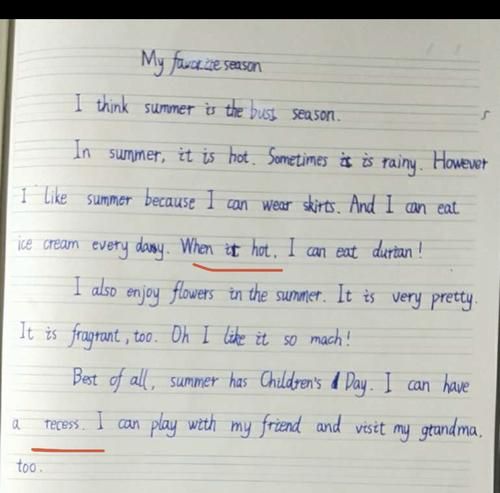 My favorite season
I think summer is the bust season.
In summer, it is hot. Sometimes it is rainy. However
I like summer because I can wear skirts. And I can eat
ice cream every day. When it hot, I can eat durian!
I also enjoy flowers in the summer. It is very pretty.
It is fragrant, too. Oh I like it so mach!
Best of all, summer has Children's Day. I can have
a recess. I can play with my friend and visit my grandma,
too.